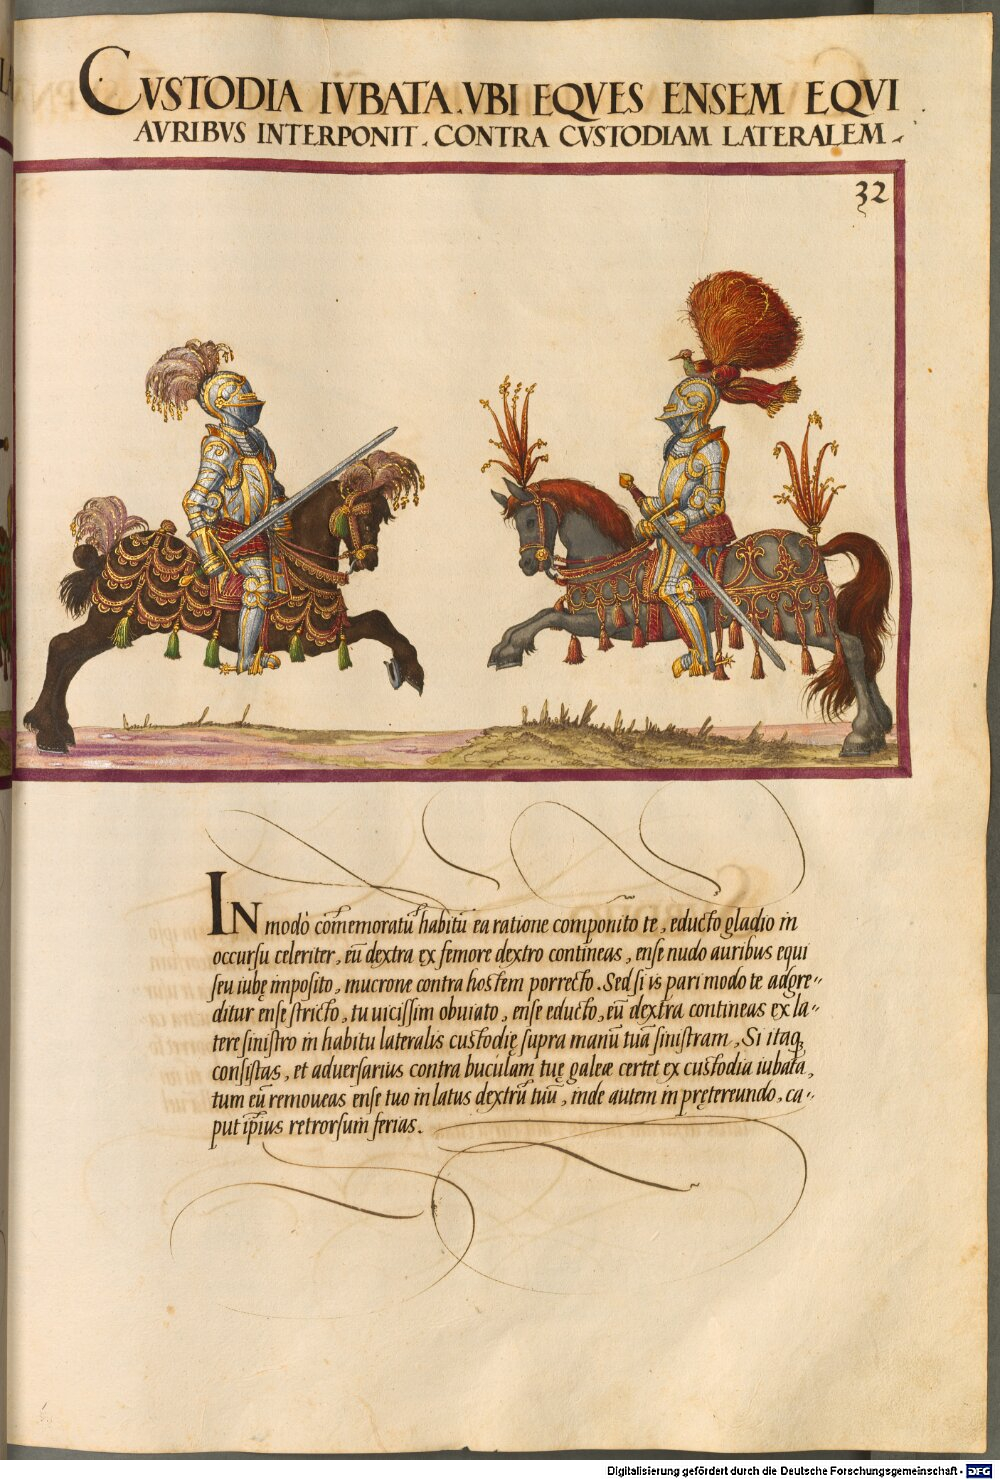 CVSTODIA IVBATA. VBI EQVES ENSEM EQVI
AVRIBVS INTERPONIT. CONTRA CVSTODIAM LATERALEM.
32
IN modò com̃emoratũ habitũ ea ratione componito te, educto gladio in
occursu celeriter, eũ dextra ex femore dextro contineas, ense nudo auribus equi
seu iubę imposito, mucrone contra hostem porrecto. Sed si is pari modo te adgre„
ditur ense stricto, tu uicissim obuiato, ense educto, eũ dextra contineas ex la„
tere sinistro in habitu lateralis custodię supra manũ tuã sinistram, Si itaq
consistas, et aduersarius contra buculam tuę galeæ certet ex custodia iubata,
tum eũ remoueas ense tuo in latus dextrũ tuũ, inde autem in prętereundo, ca„
put ip̃ius retrorsum ferias.
Digitalisierung gefördert durch die Deutsche Forschungsgemeinschaft - DFG